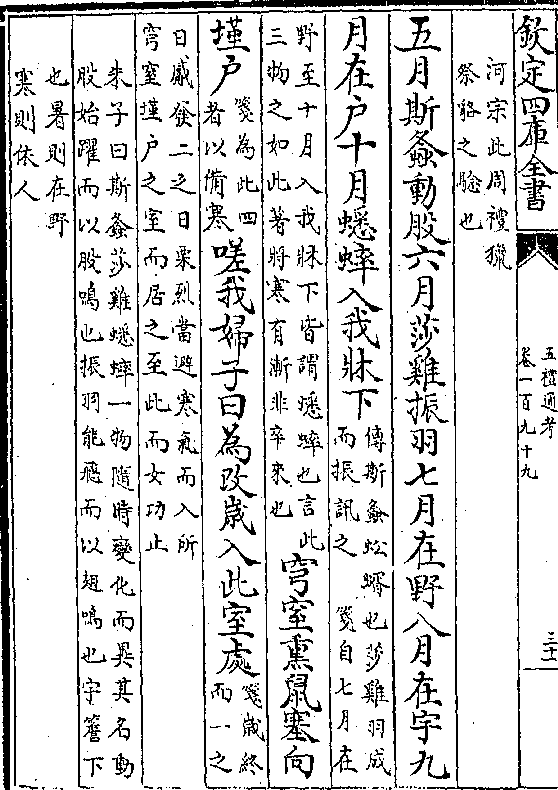 欽定四庫全書
五禮通考
卷一百九十九
三十一
河宗此周禮獵
祭貉之驗也
五月斯螽動股六月莎雞振羽七月在野八月在宇九
月在户十月蟋蟀入我牀下
傳斯螽蚣蝑也莎雞羽成
而振訊之 箋自七月在
野至十月入我牀下皆謂蟋蟀也言此
三物之如此著將寒有漸非卒來也
穹室熏鼠塞向
墐户
箋為此四
者以備寒
嗟我婦子曰為改歲入此室處
箋歲終
而一之
日觱發二之日栗烈當避寒氣而入所
穹窒墐户之室而居之至此而女功止
朱子曰斯螽莎雞蟋蟀一物隨時變化而異其名動
股始躍而以股鳴也振羽能飛而以翅鳴也宇簷下
也暑則在野
寒則依人